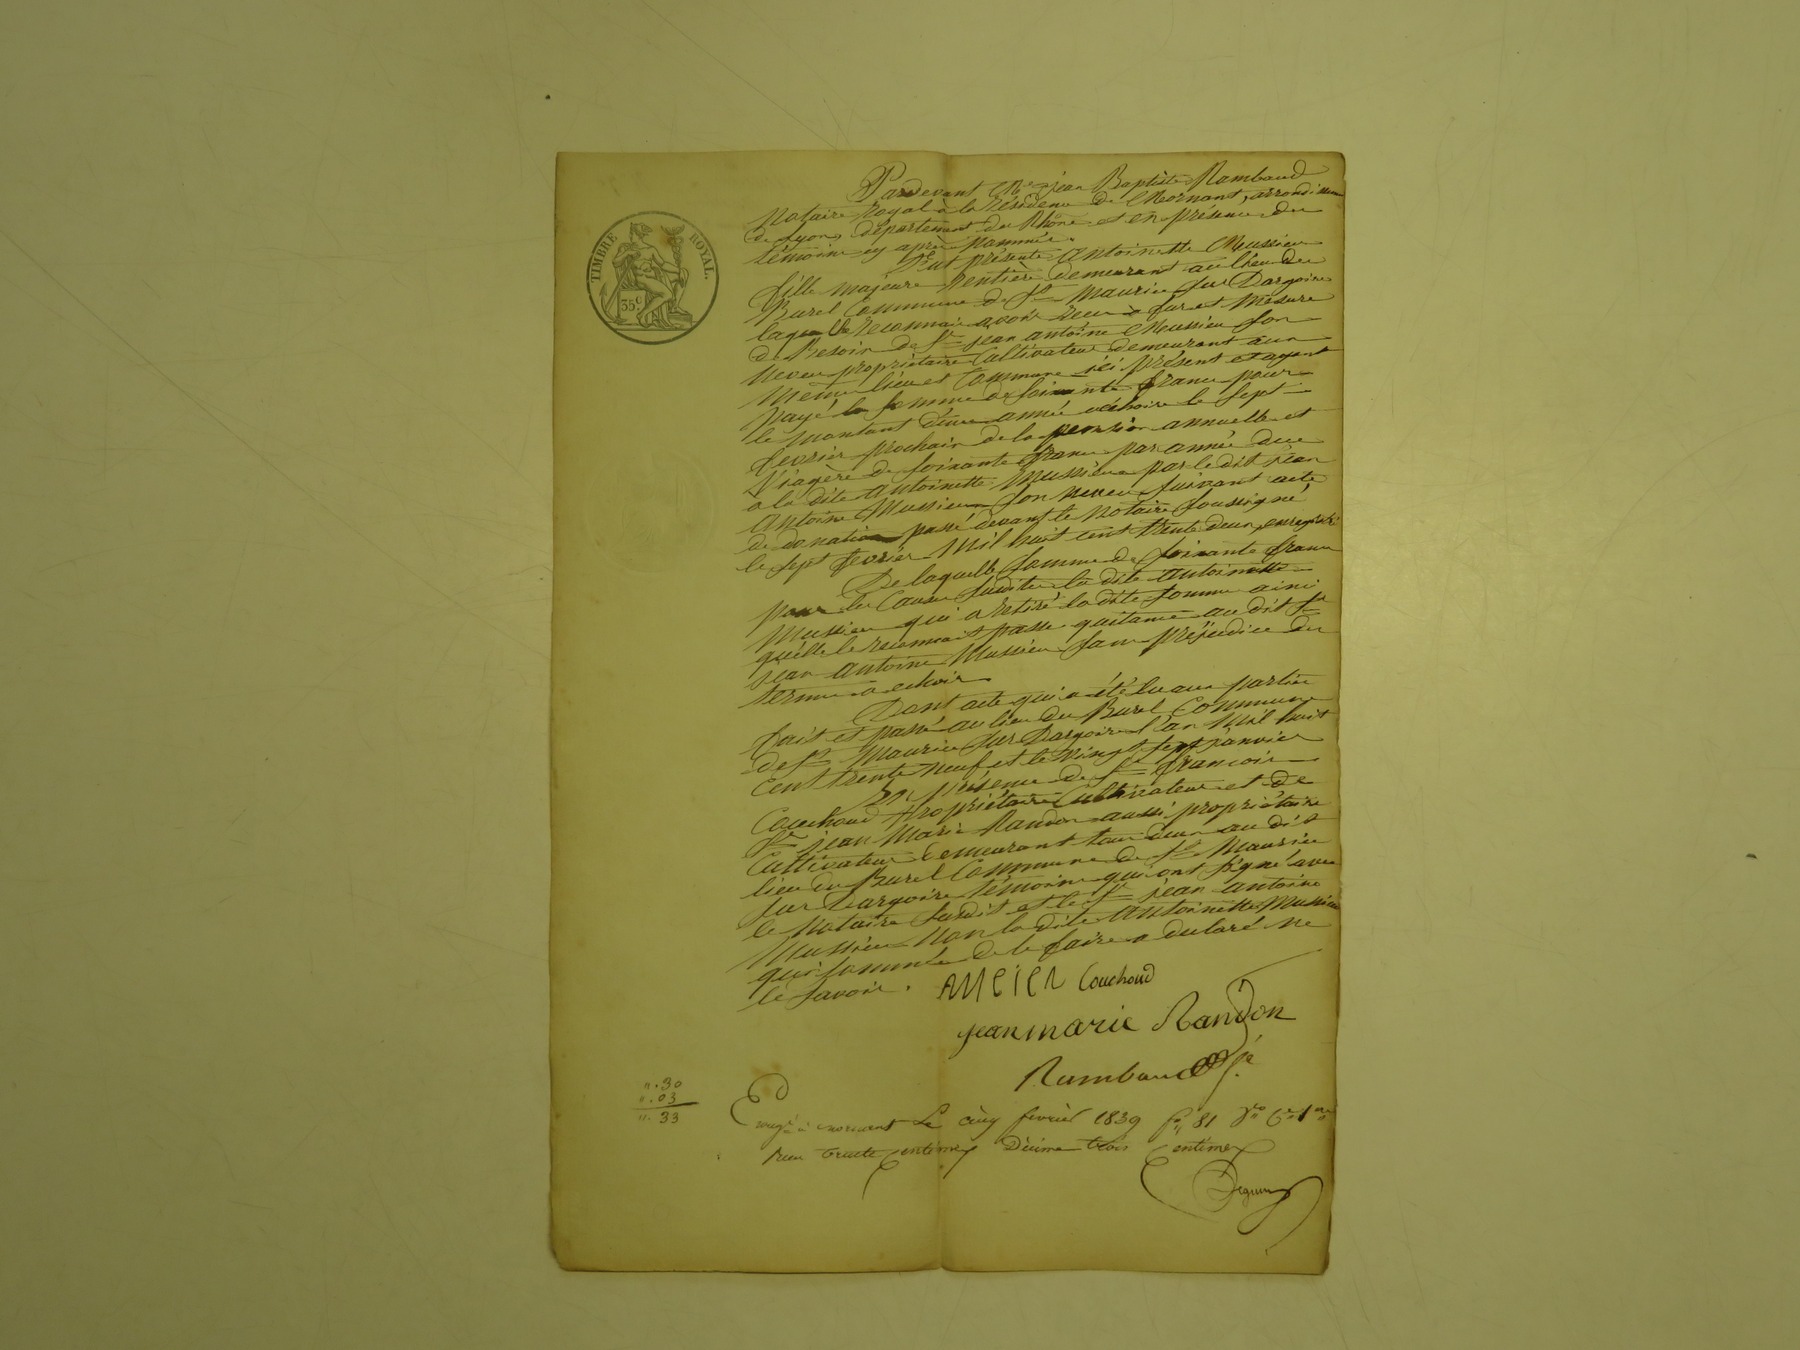 TIMBRE ROYAL.
35c
Pardevant Me jean Baptiste Rambaud
Notaire Royal à la résidence de Mornant, arrondissem
de Lyon, département du Rhône et en présence des
témoins cy après nommés.
Fut présente Antoinette Mussieu
fille majeure rentière demeurant au lieu du
Burel Commune de St Maurice sur Dargoire
laquelle reconnait avoir reçu a fur et mesure
de besoin de Sr jean antoine Mussieu son
neveu propriétaire Cultivateur demeurant aux
même lieu et Commune ici présent et ayant
payé la somme de soixante francs pour
le montant d'une année échoire le sept
fevrier prochain de la pension annuelle et
Viagère de soixante francs par année due
a la dite Antoinette Mussieu par le dit jean
Antoine Mussieu son neveu suivant acte
de donation passé devant le Notaire soussigné
le sept fevrier Mil huit cent trente deux, enregistré
De laquelle somme de soixante francs
pour les causes susdites la dite Antoinette
Mussieu qui a retiré la dite somme ainsi
qu'elle le reconnait passe quitance au dit Sr
jean Antoine Mussieu sans préjudice du
terme a echoir
Dont acte qui a été lu aux parties
fait et passé au lieu du Burel Commune
de St Maurice sur Dargoire l'an Mil huit
cent trente neuf et le vingt sept janvier
En présence de Sr françois
Couchoud propriétaire Cultivateur et de
Sr jean Marie Randon aussi propriétaire
Cultivateur demeurant tous deux au dit
lieu du Burel Commune de St Maurice
sur Dargoire témoins qui ont signé avec
le Notaire susdit et le Sr jean antoine
Mussieu Non la dite Antoinette Mussieu
qui sommée de le faire a declaré ne
le savoir.
Couchoud
jean marie Randon
Rambaud
" . 30
" . 03
" . 33
Enregé à mornant Le cinq fevrier 1839 fo 81
Reçu trente centimes Décime trois Centimes